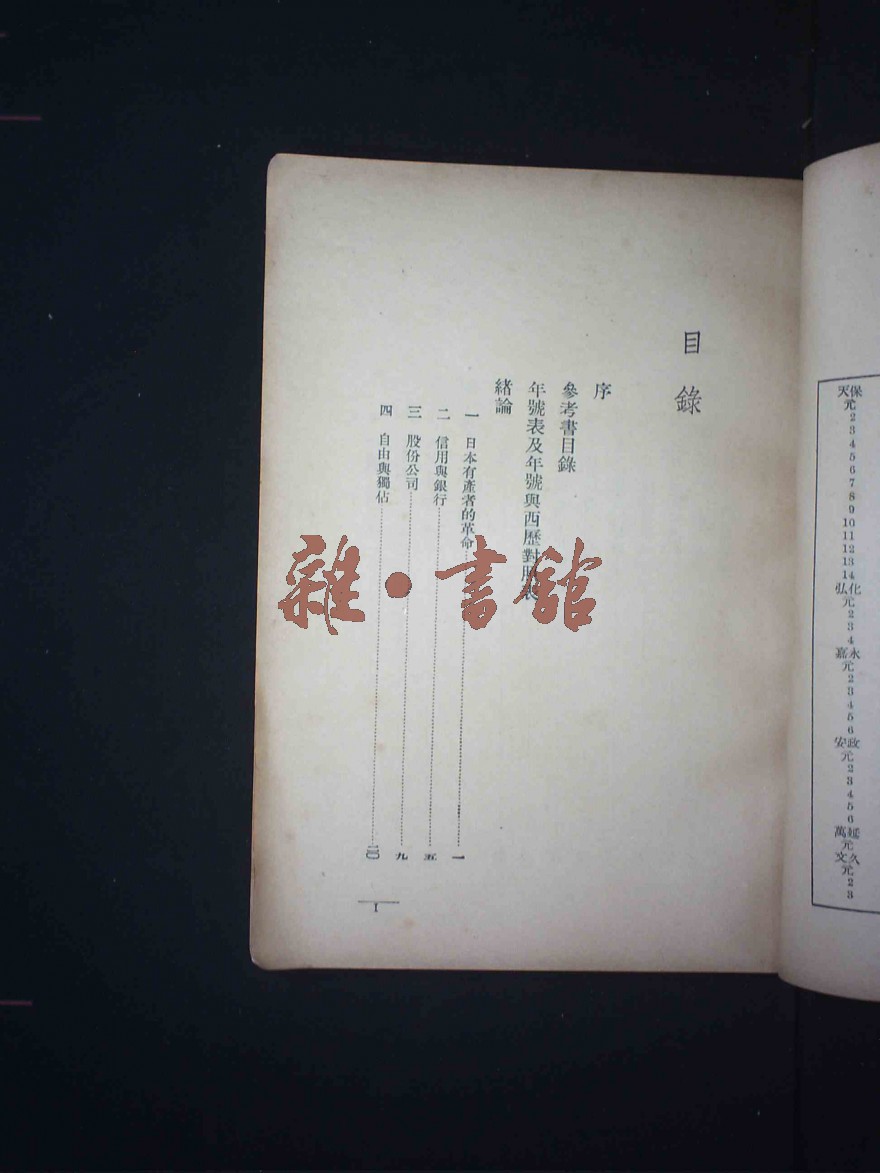 目錄
序
參考書目錄
年號表及年號與西歷對照表
緒論
一 日本有產者的革命 一
二 信用與銀行 五
三 股份公司 九
四 自由與獨佔 二〇
I
雜·書館
天保
元
2
3
4
5
6
7
8
9
10
11
12
13
14
弘化
元
2
3
4
嘉永
元
2
3
4
5
6
安政
元
2
3
4
5
6
萬延
元
文久
元
2
3